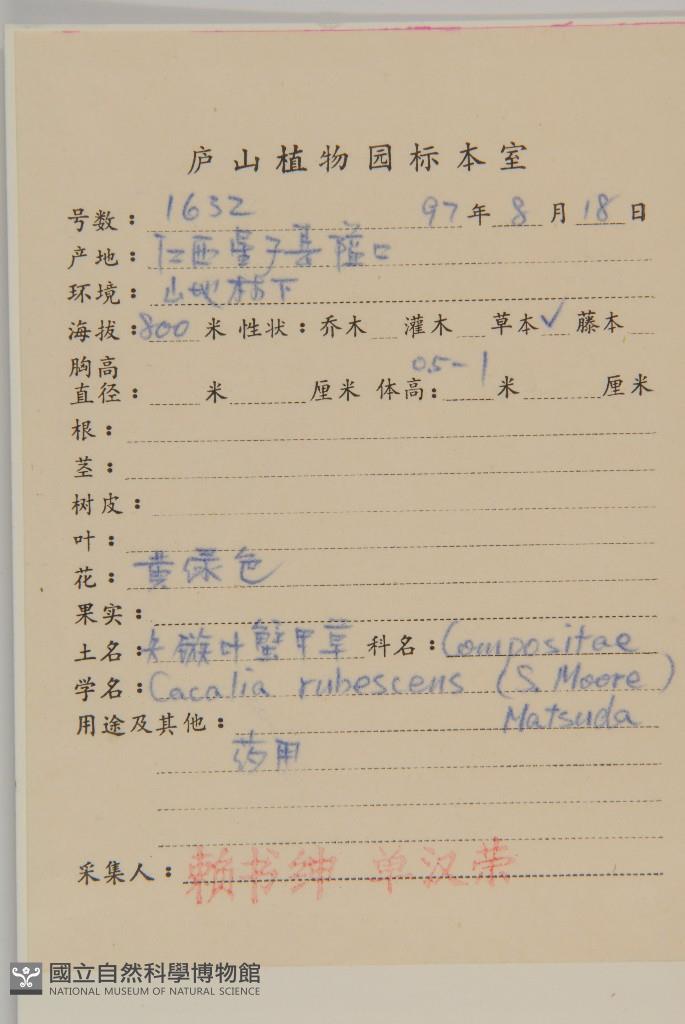 庐山植物园标本室
号数：1632 97年8月18日
产地：江西星子县隘口
环境：山地林下
海拔：800米 性状：乔木 灌木 草本✓ 藤本
胸高
直径： 米 厘米 体高：0.5-1米 厘米
根：
茎：
树皮：
叶：
花：黄绿色
果实：
土名：矢镞叶蟹甲草 科名：Compositae
学名：Cacalia rubescens (S. Moore)
Matsuda
用途及其他：
药用
采集人：赖书绅 单汉荣
國立自然科學博物館
NATIONAL MUSEUM OF NATURAL SCIENCE